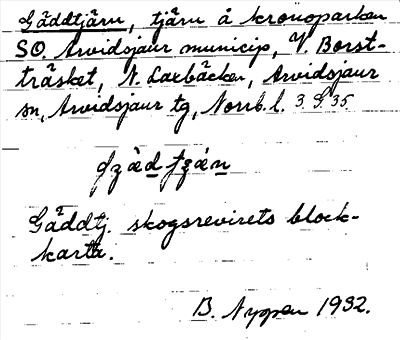 Gäddtjärn, tjärn å kronoparken
SO. Arvidsjaur municip, V. Borst-
träsket, N. Laxbäcken, Arvidsjaur
sn, Arvidsjaur tg, Norrb. l. 3 G 35
Gäddtj. skogsrevirets block-
karta.
B. Nyppen 1932.